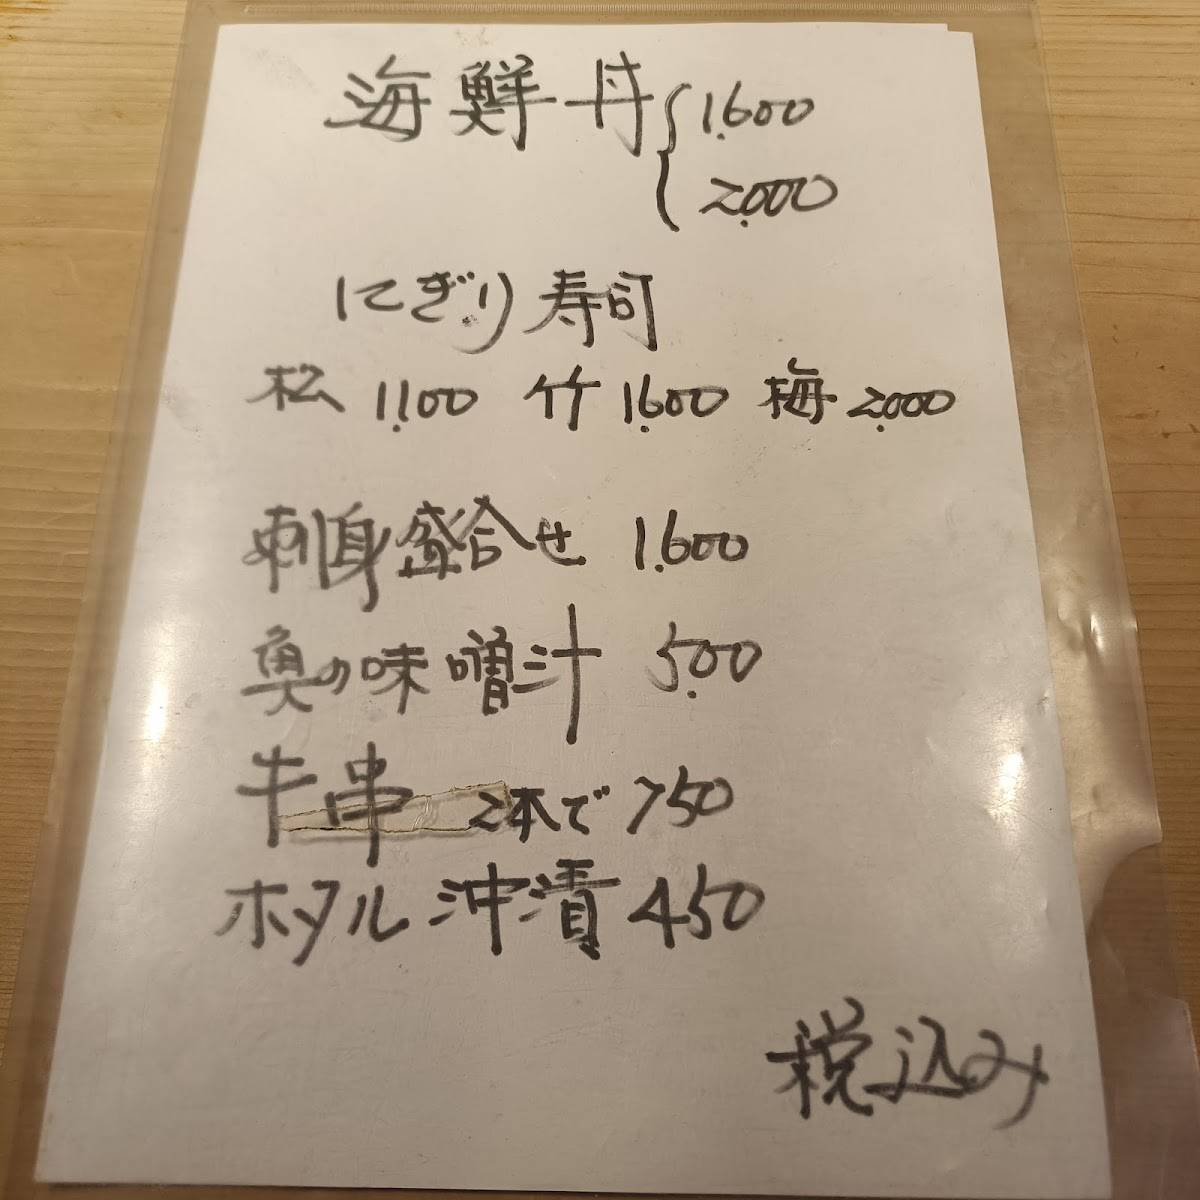 海鮮丼 1.600
2.000
にぎり寿司
松 1.100 竹 1.600 梅 2.000
刺身盛合せ 1.600
魚の味噌汁 500
牛串 2本で 750
ホタル沖漬 450
税込み